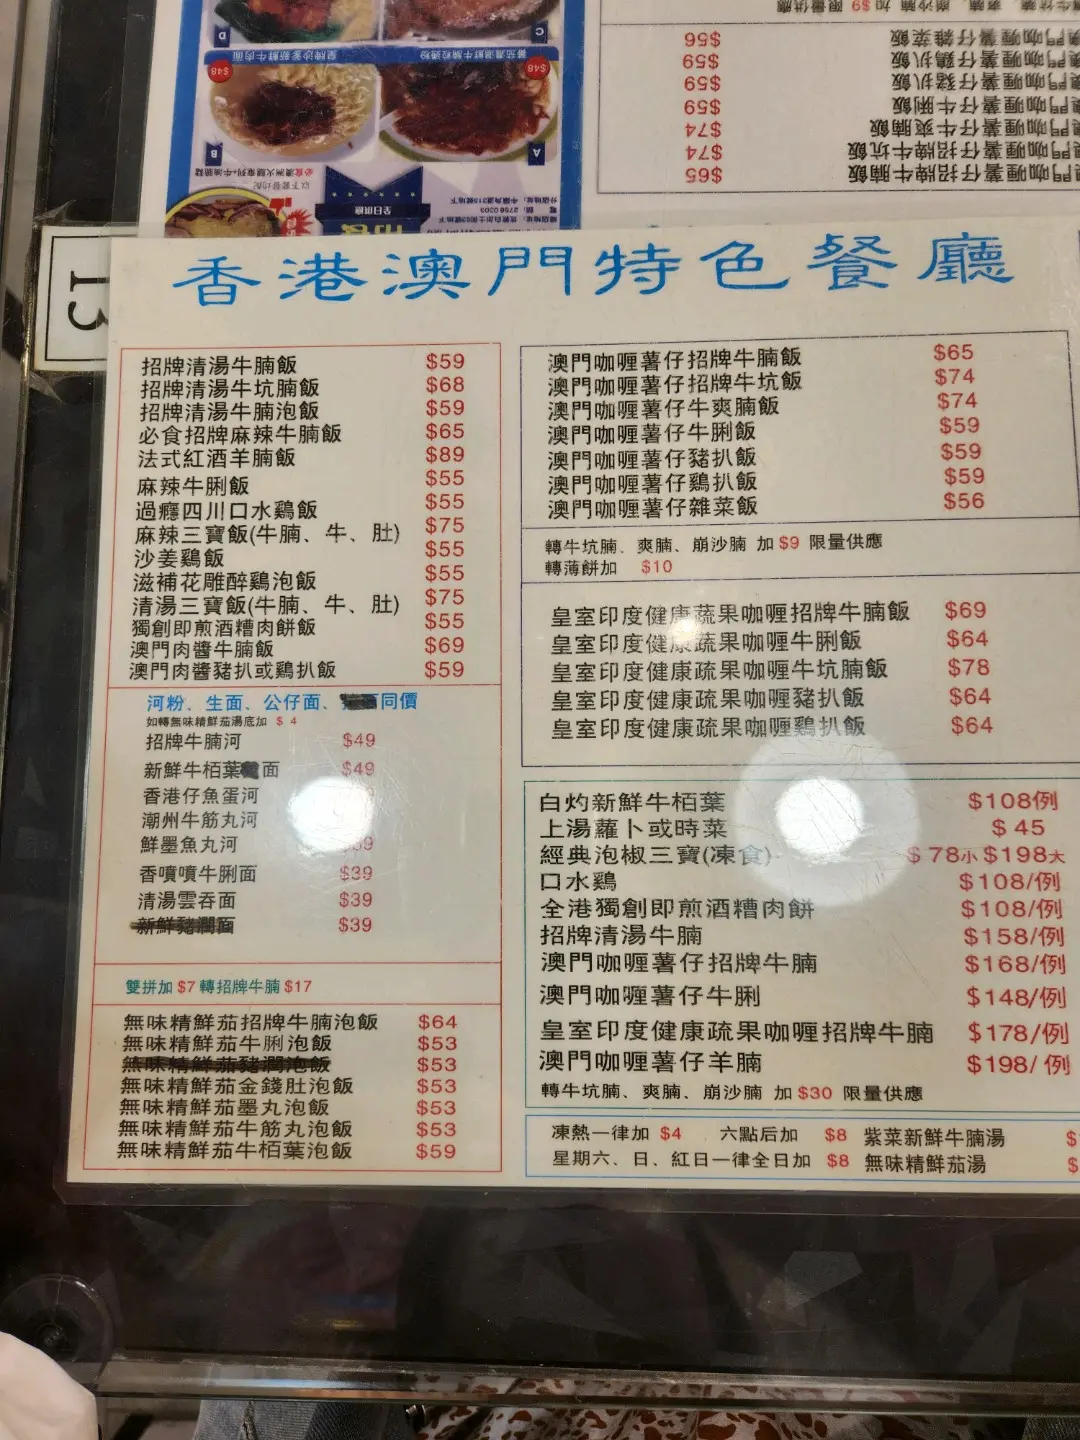 香港澳門特色餐廳
13
招牌清湯牛腩飯 $59
招牌清湯牛坑腩飯 $68
招牌清湯牛腩泡飯 $59
必食招牌麻辣牛腩飯 $65
法式紅酒羊腩飯 $89
麻辣牛脷飯 $55
過癮四川口水鷄飯 $55
麻辣三寶飯(牛腩、牛、肚) $75
沙姜鷄飯 $55
滋補花雕醉鷄泡飯 $55
清湯三寶飯(牛腩、牛、肚) $75
獨創即煎酒糟肉餅飯 $55
澳門肉醬牛腩飯 $69
澳門肉醬豬扒或鷄扒飯 $59
河粉、生面、公仔面、同價
如轉無味精鮮茄湯底加 $ 4
招牌牛腩河 $49
新鮮牛栢葉面 $49
香港仔魚蛋河
潮州牛筋丸河
鮮墨魚丸河
香噴噴牛脷面 $39
清湯雲吞面 $39
新鮮豬潤面 $39
雙拼加 $7 轉招牌牛腩 $17
無味精鮮茄招牌牛腩泡飯 $64
無味精鮮茄牛脷泡飯 $53
無味精鮮茄豬潤泡飯 $53
無味精鮮茄金錢肚泡飯 $53
無味精鮮茄墨丸泡飯 $53
無味精鮮茄牛筋丸泡飯 $53
無味精鮮茄牛栢葉泡飯 $59
澳門咖喱薯仔招牌牛腩飯 $65
澳門咖喱薯仔招牌牛坑飯 $74
澳門咖喱薯仔牛爽腩飯 $74
澳門咖喱薯仔牛脷飯 $59
澳門咖喱薯仔豬扒飯 $59
澳門咖喱薯仔鷄扒飯 $59
澳門咖喱薯仔雜菜飯 $56
轉牛坑腩、爽腩、崩沙腩 加 $9 限量供應
轉薄餅加 $10
皇室印度健康蔬果咖喱招牌牛腩飯 $69
皇室印度健康蔬果咖喱牛脷飯 $64
皇室印度健康疏果咖喱牛坑腩飯 $78
皇室印度健康疏果咖喱豬扒飯 $64
皇室印度健康疏果咖喱鷄扒飯 $64
白灼新鮮牛栢葉 $108例
上湯蘿卜或時菜 $ 45
經典泡椒三寶(凍食) $ 78小 $198大
口水鷄 $108/例
全港獨創即煎酒糟肉餅 $108/例
招牌清湯牛腩 $158/例
澳門咖喱薯仔招牌牛腩 $168/例
澳門咖喱薯仔牛脷 $148/例
皇室印度健康疏果咖喱招牌牛腩 $178/例
澳門咖喱薯仔羊腩 $198/例
轉牛坑腩、爽腩、崩沙腩 加 $30 限量供應
凍熱一律加 $4 六點后加 $8 紫菜新鮮牛腩湯 $
星期六、日、紅日一律全日加 $8 無味精鮮茄湯 $
澳門咖喱薯仔招牌牛腩飯 $65
澳門咖喱薯仔招牌牛坑飯 $74
澳門咖喱薯仔牛爽腩飯 $74
澳門咖喱薯仔牛脷飯 $59
澳門咖喱薯仔豬扒飯 $59
澳門咖喱薯仔鷄扒飯 $59
澳門咖喱薯仔雜菜飯 $56
全日供應
A
B
C
D
$48
$48